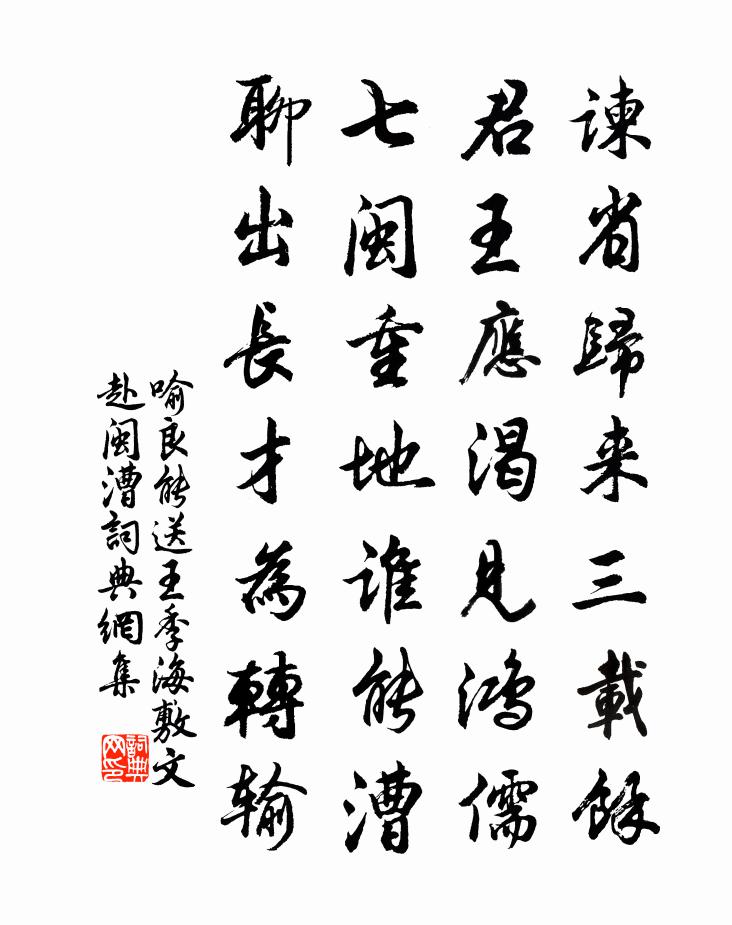 諫省歸来三載餘
君王應渴見鴻儒
七閩重地誰能漕
聊出長才為轉输
喻良能送王季海敷文
赴閩漕詞典網集
詞典
网印